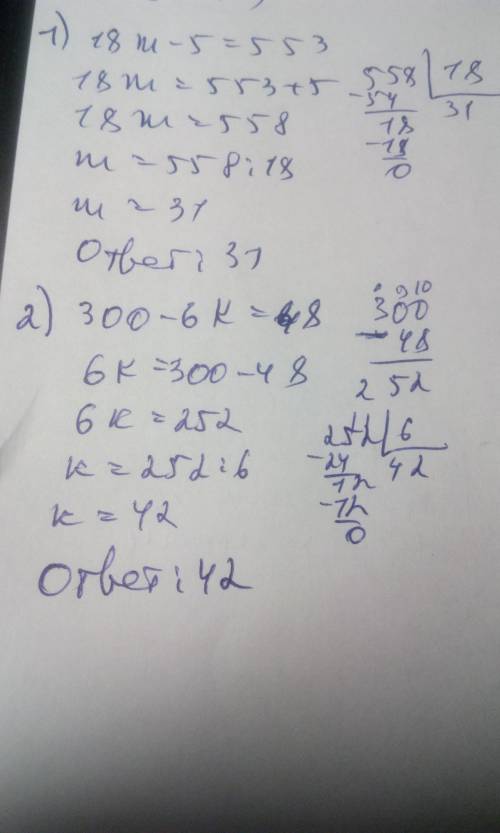 1) 18 m - 5 = 553
18 m = 553 + 5
18 m = 558
m = 558 : 18
m = 31
Ответ: 31
558 | 18
-54 31
18
-18
0
2) 300 - 6к = 48
6к = 300 - 48
6к = 252
к = 252 : 6
к = 42
Ответ: 42
9 10
300
- 48
252
252 | 6
-24 42
12
-12
0